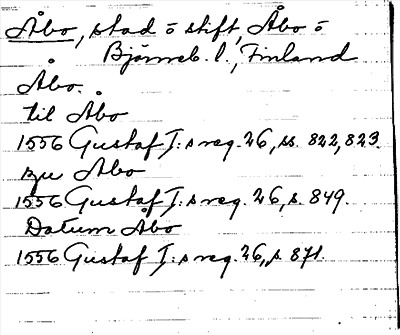 Åbo, stad o stift, Åbo o
Björneb. l., Finland
Åbo.
til Åbo
1556 Gustaf I:s reg. 26, ss. 822, 823.
zu Abo
1556 Gustaf I:s reg. 26, s. 849.
Datum Åbo
1556 Gustaf I:s reg. 26, s. 871.